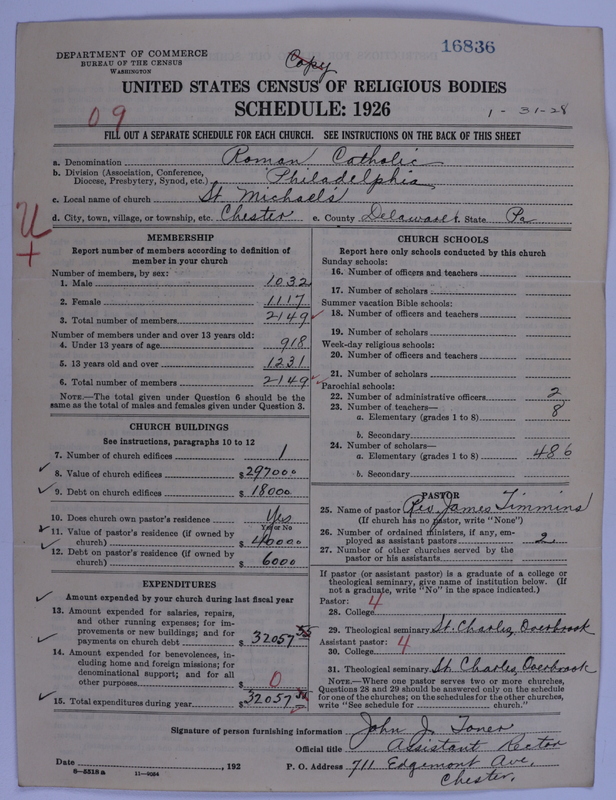 16836
DEPARTMENT OF COMMERCE
BUREAU OF THE CENSUS
WASHINGTON
Copy
UNITED STATES CENSUS OF RELIGIOUS BODIES
SCHEDULE: 1926
09
1-31-28
FILL OUT A SEPARATE SCHEDULE FOR EACH CHURCH. SEE INSTRUCTIONS ON THE BACK OF THIS SHEET
a. Denomination Roman Catholic
b. Division (Association, Conference, Diocese, Presbytery, Synod, etc.) Philadelphia
c. Local name of church St. Michael's
d. City, town, village, or township, etc. Chester e. County Delaware f. State Pa
MEMBERSHIP
Report number of members according to definition of
member in your church
Number of members, by sex:
1. Male 1032
2. Female 1117
3. Total number of members 2149
Number of members under and over 13 years old:
4. Under 13 years of age 918
5. 13 years old and over 1231
6. Total number of members 2149
NOTE.—The total given under Question 6 should be
same as the total of males and females given under Question 3.
CHURCH BUILDINGS
See instructions, paragraphs 10 to 12
7. Number of church edifices 1
8. Value of church edifices $297000
9. Debt on church edifices $18000
10. Does church own pastor's residence Yes
Yes or No
11. Value of pastor's residence (if owned by
church) $40000
12. Debt on pastor's residence (if owned by
church) $6000
EXPENDITURES
Amount expended by your church during last fiscal year
13. Amount expended for salaries, repairs,
and other running expenses; for im-
provements or new buildings; and for
payments on church debt $32057
14. Amount expended for benevolences, in-
cluding home and foreign missions; for
denominational support; and for all
other purposes $0
15. Total expenditures during year $32057
CHURCH SCHOOLS
Report here only schools conducted by this church
Sunday schools:
16. Number of officers and teachers
17. Number of scholars
Summer vacation Bible schools:
18. Number of officers and teachers
19. Number of scholars
Week-day religious schools:
20. Number of officers and teachers
21. Number of scholars
Parochial schools:
22. Number of administrative officers 2
23. Number of teachers—
a. Elementary (grades 1 to 8) 8
b. Secondary
24. Number of scholars—
a. Elementary (grades 1 to 8) 486
b. Secondary
PASTOR
25. Name of pastor Rev. James Timmins
(If church has no pastor, write "None")
26. Number of ordained ministers, if any, em-
ployed as assistant pastors 2
27. Number of other churches served by the
pastor or his assistants
If pastor (or assistant pastor) is a graduate of a college or
theological seminary, give name of institution below. (If
not a graduate, write "No" in the space indicated.)
Pastor:
28. College 4
29. Theological seminary St. Charles, Overbrook
Assistant pastor:
30. College 4
31. Theological seminary St. Charles, Overbrook
NOTE.—Where one pastor serves two or more churches,
Questions 28 and 29 should be answered only on the schedule
for one of the churches; on the schedules for the other churches,
write "See schedule for church."
Signature of person furnishing information John J. Toner
Official title Assistant Rector
Date , 192 P. O. Address 711 Edgemont Ave,
Chester.
8-5318a 11-9084